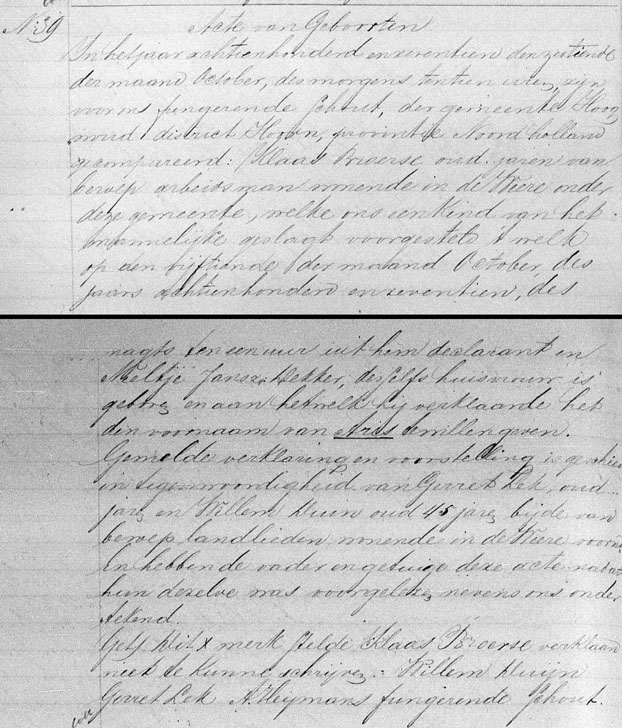 No 39 Acte van Geboorten
In het jaar achttienhonderd en zeventien den zestiende
der maand October, des morgens ten tien uren, zijn
voor ons fungerende Schout, der gemeente Hoog
woud district Hoorn, provintie Noord holland
gecompareerd: Klaas Broerse oud jaren van
beroep arbeitsman wonende in de Weere onder
deze gemeente, welke ons een Kind van het
mannelijke geslagt voorgesteld 't welk
op den vijftiende der maand October, des
jaars achttienhonderd en zeventien, des
nagts ten een uur uit hem declarant en
Meltje Jansz. Dekker, deszelfs huisvrouw is
gebore, en aan hetwelk hij verklaarde het
den voornaam van Aris te willen geven.
Gemelde verklaring en voorstelling is geschied
in tegenwoordigheid van Gerret Lek, oud
jare en Willem Kuin oud 45 jare, bijde van
beroep landlieden wonende in de Weere voorn
En hebben de vader en getuige deze acte nadat
hun dezelve was voorgeleze, nevens ons onder
tekend.
Get. Dit X merk stelde Klaas Broerse verklaar
niet te kunne schrijve. - Willem Kuijn
Gerret Lek A. Heymans fungerende Schout.